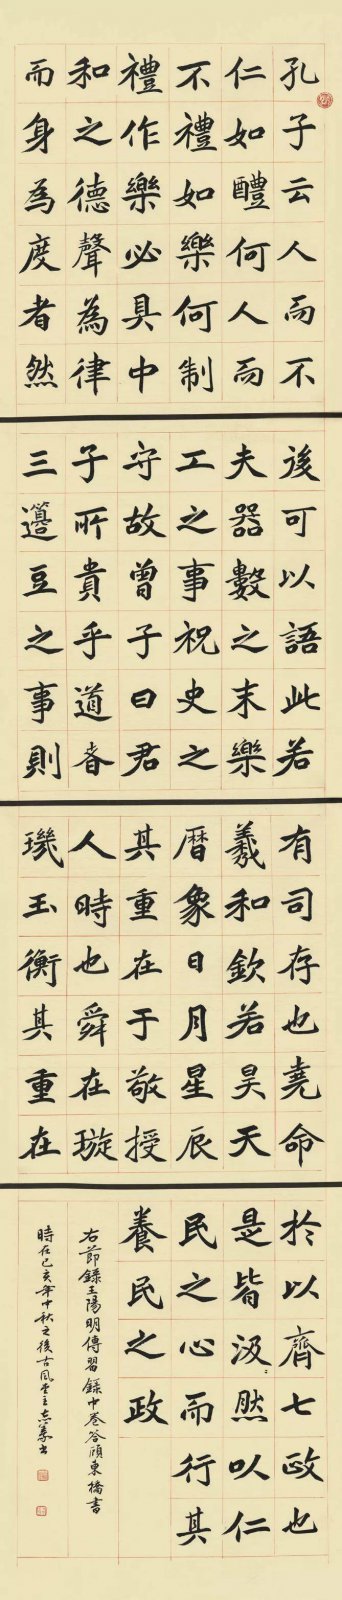 孔子云人而不
仁如醴何人而
不禮如樂何制
禮作樂必具中
和之德聲為律
而身為度者然
後可以語此若
夫器數之末樂
工之事祝史之
守故曾子曰君
子所貴乎道者
三籩豆之事則
有司存也堯命
羲和欽若昊天
曆象日月星辰
其重在于敬授
人時也舜在璇
璣玉衡其重在
於以齊七政也
是皆汲々然以仁
民之心而行其
養民之政
右節錄王陽明傳習錄中卷答顧東橋書
時在己亥年中秋之後古風堂主